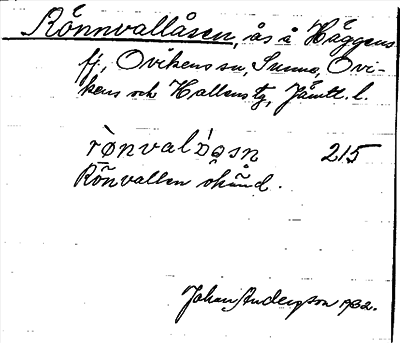 Rönnvallåsen, ås å Häggens
fj, Ovikens sn, Sunne, Ovi-
kens och Hallens tg, Jämtl. l.
rø̀nvalɔ́asn 215
Rönvallen okänd.
Johan Anderzson 1932.